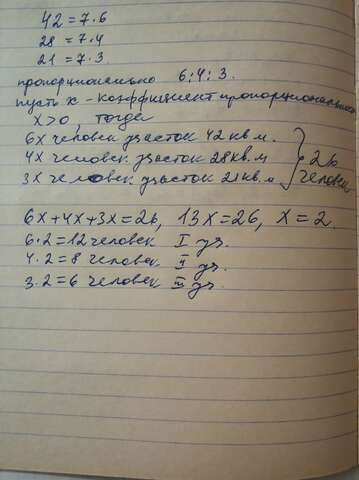 42 = 7·6
28 = 7·4
21 = 7·3
пропорционально 6:4:3.
пусть x - коэффициент пропорциональности
x>0, тогда
6x человек участок 42 кв м.
4x человек участок 28 кв. м
3x человек участок 21 кв. м
26 человек
6x+4x+3x=26, 13x=26, x=2.
6·2=12 человек I уч.
4·2=8 человек II уч.
3·2=6 человек III уч.